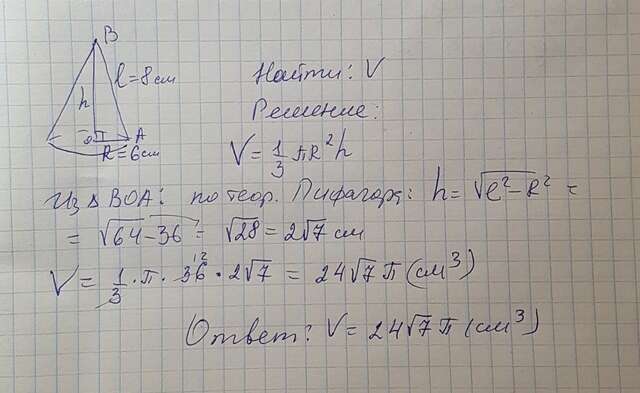 B
l=8см
h
O
A
R=6см
Найти: V
Решение:
V=1/3 πR²h
Из △BOA: по теор. Пифагора: h= √l²-R² =
= √64-36 = √28 = 2√7 см
V= 1/3 · π · 36 12 · 2√7 = 24√7 π (см³)
Ответ: V=24√7 π (см³)